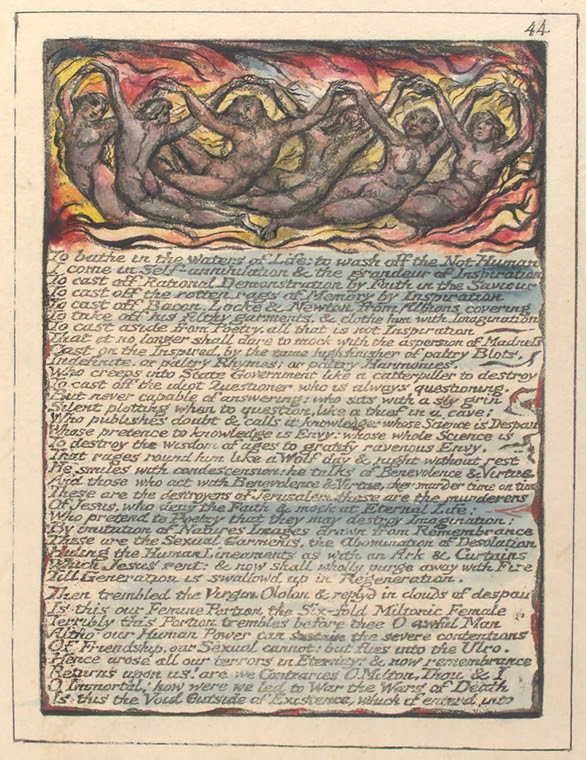 44
To bathe in the waters of Life; to wash off the Not Human
I come in Self-annihilation & the grandeur of Inspiration
To cast off Rational Demonstration by Faith in the Saviour
To cast off the rotten rags of Memory by Inspiration
To cast off Bacon, Locke & Newton from Albions covering
To take off his filthy garments, & clothe him with Imagination
To cast aside from Poetry, all that is not Inspiration
That it no longer shall dare to mock with the aspersion of Madness
Cast on the Inspired, by the tame high finisher of paltry Blots,
Indefinite, or paltry Rhymes; or paltry Harmonies.
Who creeps into State Government like a catterpiller to destroy
To cast off the idiot Questioner who is always questioning,
But never capable of answering; who sits with a sly grin
Silent plotting when to question, like a thief in a cave;
Who publishes doubt & calls it knowledge; whose Science is Despair
Whose pretence to knowledge is Envy: whose whole Science is
To destroy the wisdom of ages to gratify ravenous Envy.
That rages round him like a Wolf day & night without rest
He smiles with condescension; he talks of Benevolence & Virtue
And those who act with Benevolence & Virtue, they murder time on time
These are the destroyers of Jerusalem, these are the murderers
Of Jesus, who deny the Faith & mock at Eternal Life:
Who pretend to Poetry that they may destroy Imagination;
By imitation of Natures Images drawn from Remembrance
These are the Sexual Garments, the Abomination of Desolation
Hiding the Human Lineaments as with an Ark & Curtains
Which Jesus rent: & now shall wholly purge away with Fire
Till Generation is swallowd up in Regeneration.
Then trembled the Virgin Ololon & replyd in clouds of despair
Is this our Femine Portion the Six-fold Miltonic Female
Terribly this Portion trembles before thee O awful Man
Altho' our Human Power can sustain the severe contentions
Of Friendship, our Sexual cannot: but flies into the Ulro.
Hence arose all our terrors in Eternity! & now remembrance
Returns upon us! are we Contraries O Milton, Thou & I
O Immortal! how were we led to War the Wars of Death
Is this the Void Outside of Existence, which if enterd into